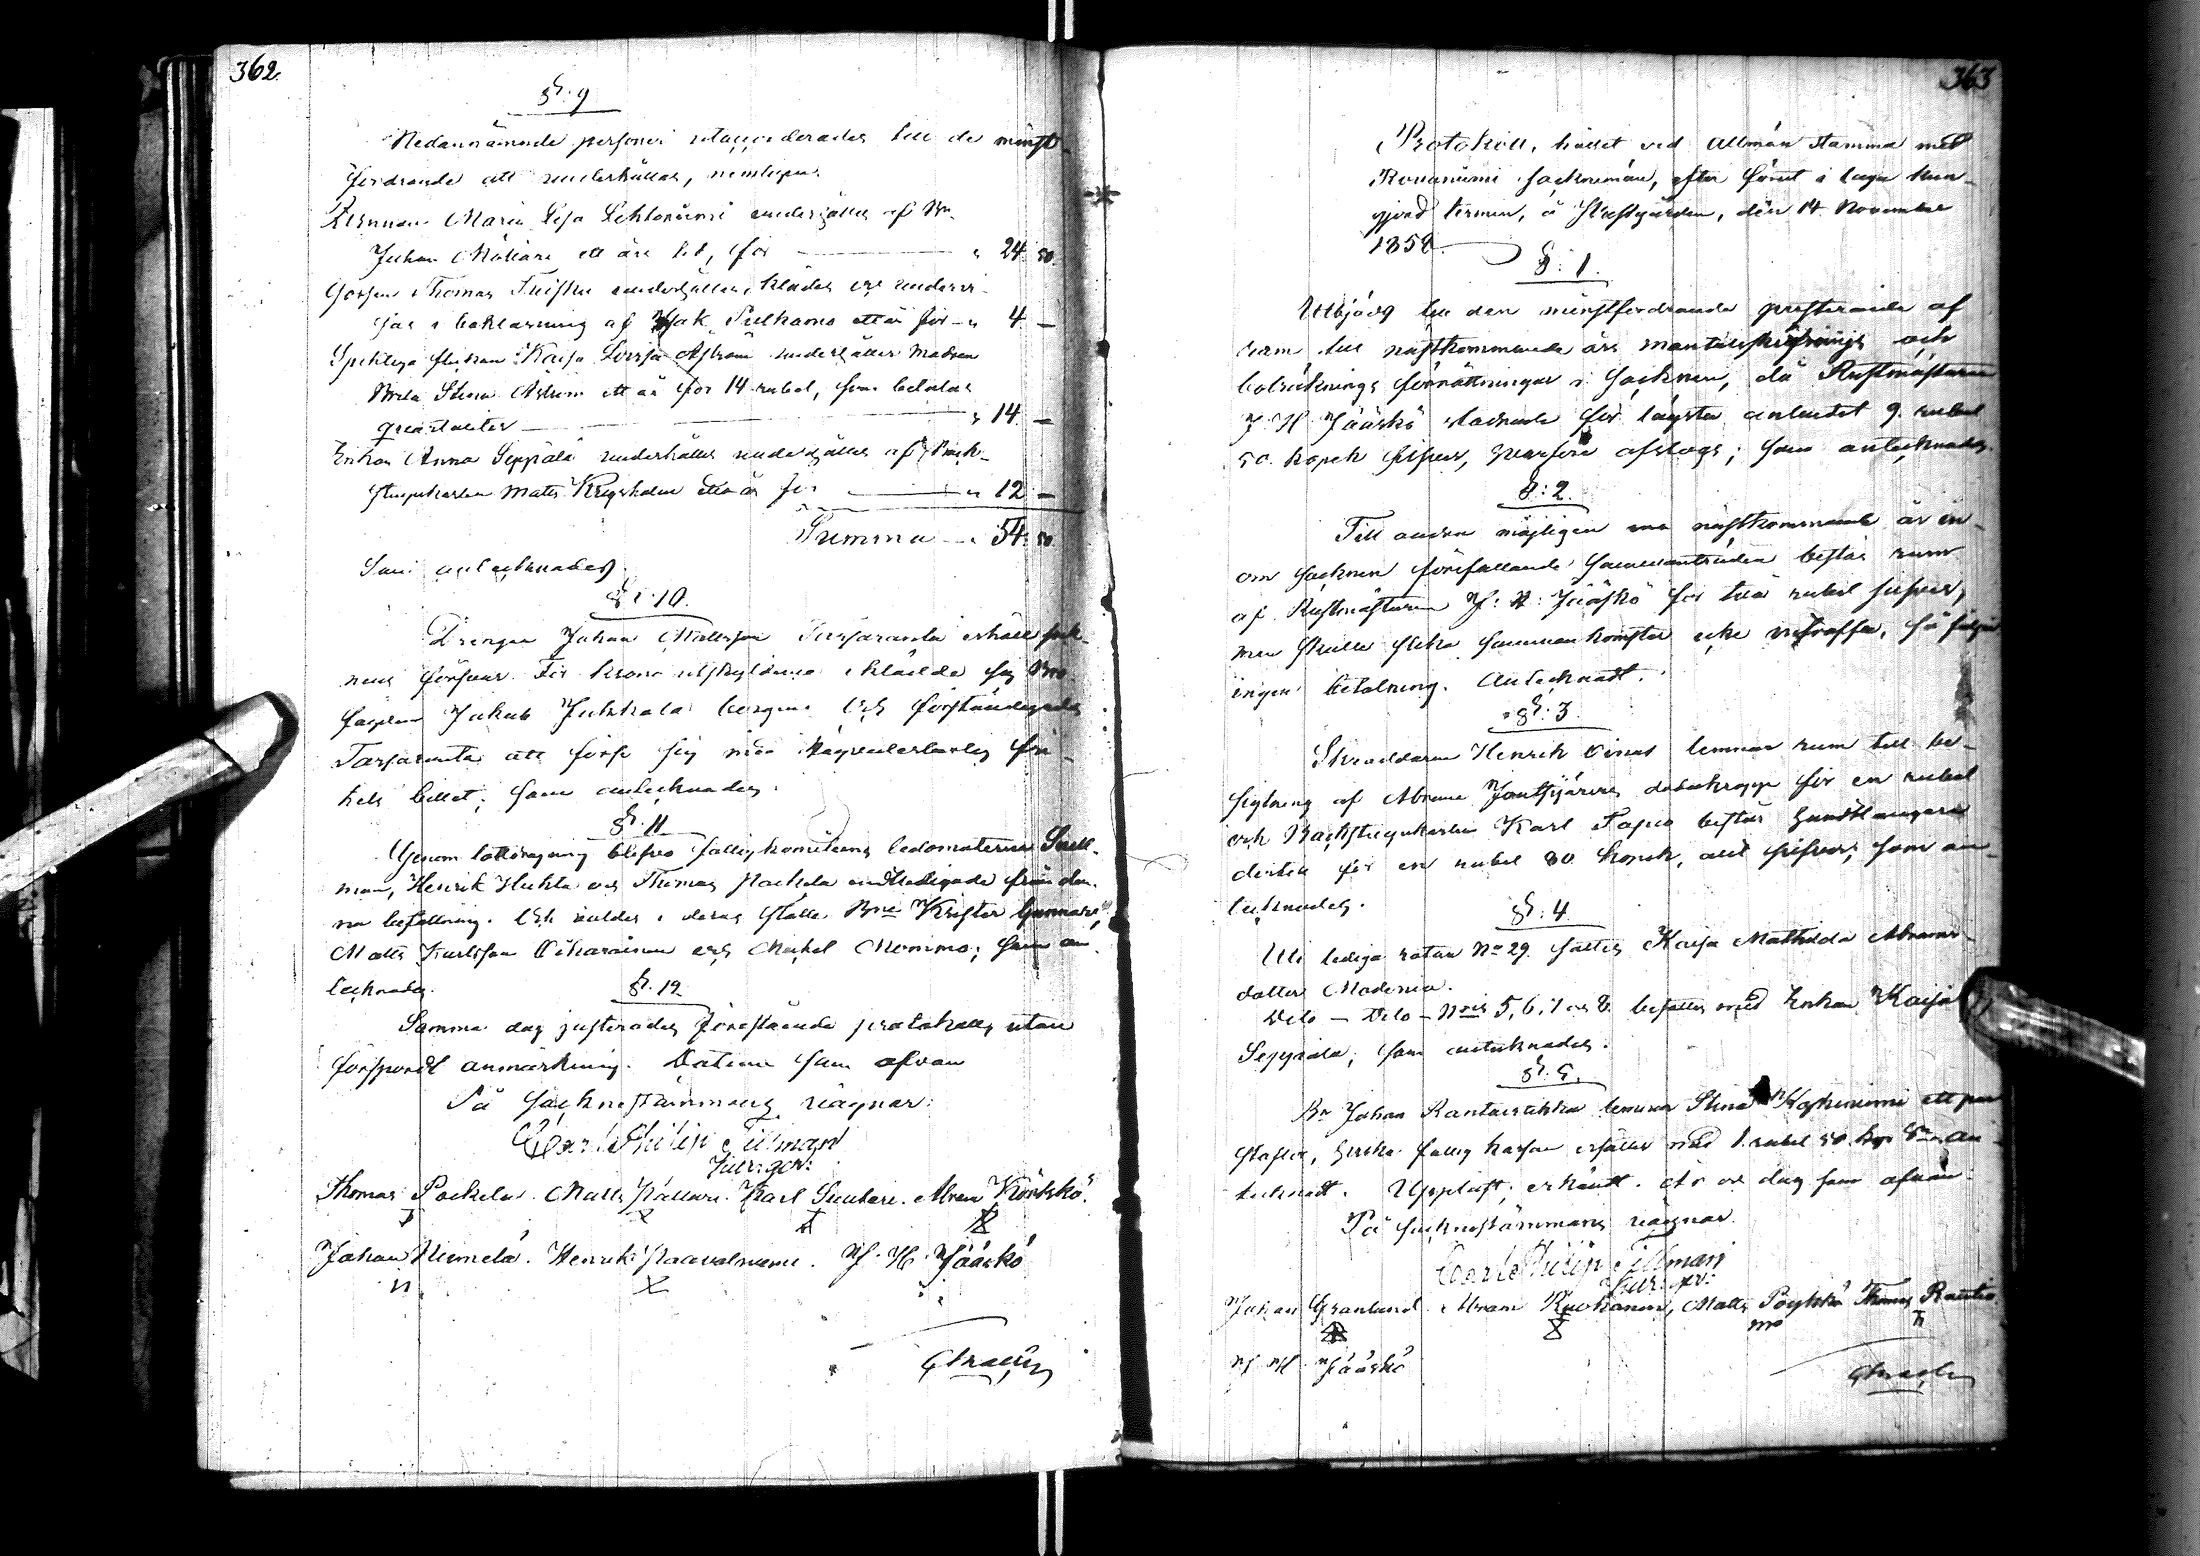 362.
§. 9
Nedannämnde personer utaccorderades till de minst
fordrande att underhållas, nemligen.
Pigan Maria Lisa Lehtoniemi underhålles af Bn.
Johan Mäkäre ett års tid, för — " 24. 50.
Gossen Thomas underhålles, klädes och undervi-
sas i boklärning af Isak Pulkamo ett år för — " 4 —
Spitelska flickan Kaisa Lovisa Åström underhålles Madam
Brita Stina Åström ett år för 14 rubel, som betalas
qvartaliter — " 14 —
Enkan Anna Seppälä underhålles af Back-
stugukarlen Matts Krigsholm ett år för — " 12 —
Summa — " 54. 50.
Som antecknades.
§: 10.
Drengen Johan Mattsson Tarsaranta erhåller sock-
nens försvar. För krono utskylderna iklädde sig Bn
sonen Jakob Jukkala borgen. Och förständigades
Tarsaranta att förse sig med vägvederbörlig för-
hels billet; som antecknades.
§. 11.
Genom lottdragning blefvo fattigkomiteens ledamöterne Snell-
man, Henrik Huhta och Thomas Pockela entledigade från den-
na befattning. Och valdes i deras ställe Bne Krister Gunnare,
Matts Karlsson Oikarainen och Mickel Mommo; som an-
tecknades.
§. 12
Samma dag justerades förestående protokoll utan
försport anmärkning. Datum som ofvan
På sockenstämmans vägnar:
Carl Philip Tillman
Thomas Pockela. Matts Kallare. Karl Suutari. Abram Körkkö.
Johan Niemelä. Henrik Paavalniemi. J. H. Jääskö
363
Protokoll, hållet vid allmän stämma med
Rovaniemi socknemän, efter förut i laga kun-
gjord termin, å Prestgården, den 14 November
1858
§: 1.
Utbjöds till den minstfordrande presterande af
rum till nästkommande års mantalsskrifnings och
boskrifnings förrättningar i socknen, då Rustmästaren
J. H. Jääskö stadnade för lägsta anbudet 9 rubel
50. kopek silfver, hvarföre afslogs; som antecknades.
§: 2.
Till andra möjligen una nästkommande år in-
om socknen förefallande sammanträden bestås rum
af Rustmästaren J: H: Jääskö för två rubel silfver,
men skulle slika sammankomster icke inträffa, så följer
ingen betalning. Antecknadt.
§: 3.
Skräddaren Henrik Oinas lemnar rum till be-
sigtning af Abram Jontijärvis döda kropp för en rubel
och Backstugukarlen Karl Tapio bestås handtlangare
dertill för en rubel 80. kopek, allt silfver; som an-
tecknades.
§: 4.
Uti lediga rotan No 29. sattes Kaisa Mathilda Abrams-
dotter Modenia.
Dito — Dito — Nris 5, 6, 7 och 8. besattes med Enkan Kaisa
Seppälä; som antecknades.
§: 5.
Bn Johan Rantaviikka lemnar Stina Koskiniemi ett par
stöflar, hvilka fattig kassan ersätter med 1. rubel 50. kop. Sr. An-
tecknadt. Uppläst; erkändt. År och dag som ofvan.
På sockenstämmans vägnar
Carl Philip Tillman
Johan Granlund. Abram Ruokanen, Matts Pöykkö Thomas Rautio
J. H. Jääskö